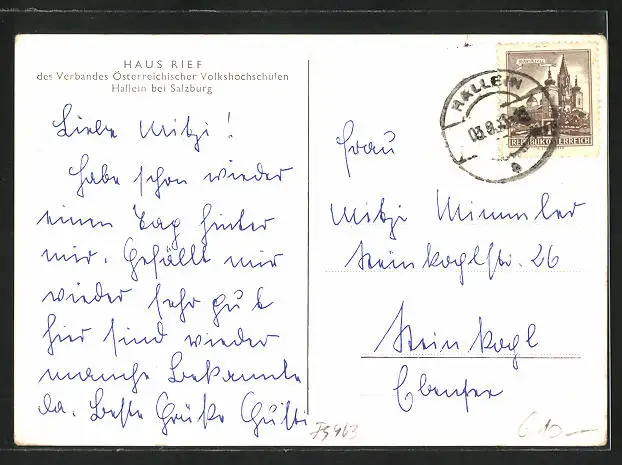 HAUS RIEF
des Verbandes Österreichischer Volkshochschulen
Hallein bei Salzburg
Liebe Mitzi!
Habe schon wieder
einen Tag hinter
mir. Gefällt mir
wieder sehr gut
hier sind wieder
manche Bekannte
da. Beste Grüße Gusti
HALLEIN
a
REPUBLIK ÖSTERREICH
Frau
Mitzi Mimmler
Steinkoglstr. 26
Steinkogl
Ebensee